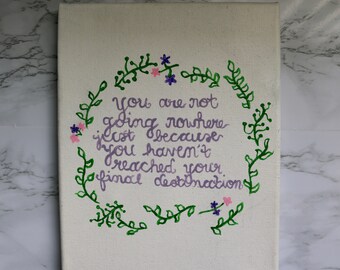 you are not
going nowhere
just because
you haven't
reached your
final destination